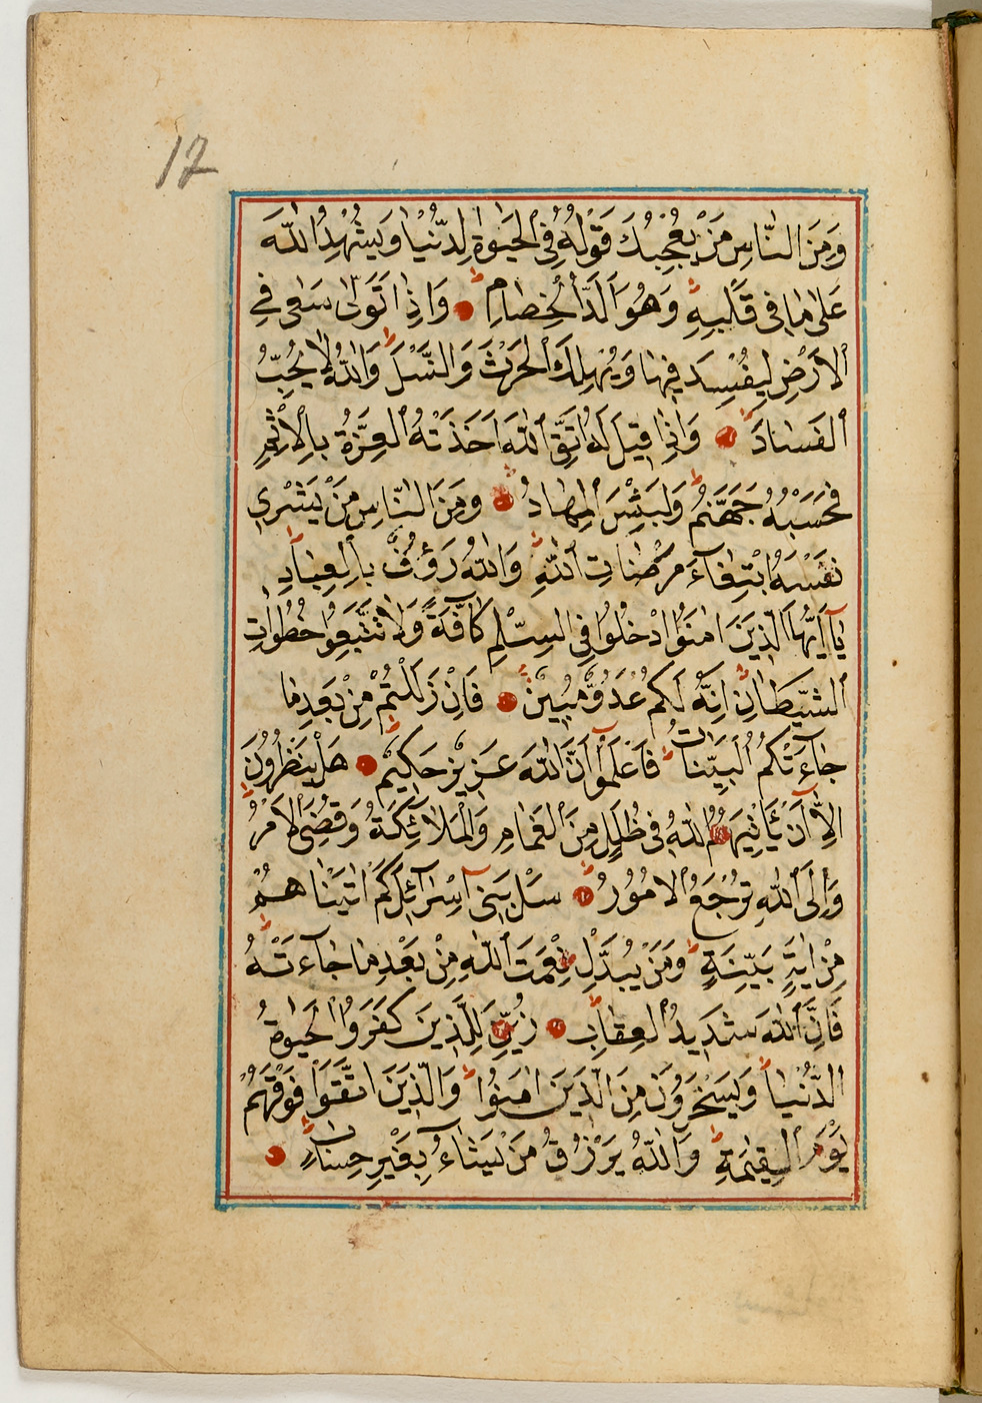 12
وَمِنَ النَّاسِ مَنْ يُعْجِبُكَ قَوْلُهُ فِي الْحَيٰوةِ الدُّنْيَا وَيُشْهِدُ اللّٰهَ
عَلٰى مَا فِي قَلْبِهِ وَهُوَ اَلَدُّ الْخِصَامِ وَاِذَا تَوَلّٰى سَعٰى فِي
الْاَرْضِ لِيُفْسِدَ فِيهَا وَيُهْلِكَ الْحَرْثَ وَالنَّسْلَ وَاللّٰهُ لَا يُحِبُّ
الْفَسَادَ وَاِذَا قِيلَ لَهُ اتَّقِ اللّٰهَ اَخَذَتْهُ الْعِزَّةُ بِالْاِثْمِ
فَحَسْبُهُ جَهَنَّمُ وَلَبِئْسَ الْمِهَادُ وَمِنَ النَّاسِ مَنْ يَشْرِي
نَفْسَهُ ابْتِغَاءَ مَرْضَاتِ اللّٰهِ وَاللّٰهُ رَؤُفٌ بِالْعِبَادِ
يَا اَيُّهَا الَّذِينَ اٰمَنُوا ادْخُلُوا فِي السِّلْمِ كَافَّةً وَلَا تَتَّبِعُوا خُطُوَاتِ
الشَّيْطَانِ اِنَّهُ لَكُمْ عَدُوٌّ مُبِينٌ فَاِنْ زَلَلْتُمْ مِنْ بَعْدِ مَا
جَاءَتْكُمُ الْبَيِّنَاتُ فَاعْلَمُوا اَنَّ اللّٰهَ عَزِيزٌ حَكِيمٌ هَلْ يَنْظُرُونَ
اِلَّا اَنْ يَأْتِيَهُمُ اللّٰهُ فِي ظُلَلٍ مِنَ الْغَمَامِ وَالْمَلَائِكَةُ وَقُضِيَ الْاَمْرُ
وَاِلَى اللّٰهِ تُرْجَعُ الْاُمُورُ سَلْ بَنِي اِسْرَائِلَ كَمْ اٰتَيْنَا هُمْ
مِنْ اٰيَةٍ بَيِّنَةٍ وَمَنْ يُبَدِّلْ نِعْمَتَ اللّٰهِ مِنْ بَعْدِ مَا جَاءَتْهُ
فَاِنَّ اللّٰهَ شَدِيدُ الْعِقَابِ زُيِّنَ لِلَّذِينَ كَفَرُوا الْحَيٰوةُ
الدُّنْيَا وَيَسْخَرُونَ مِنَ الَّذِينَ اٰمَنُوا وَالَّذِينَ اتَّقَوْا فَوْقَهُمْ
يَوْمَ الْقِيٰمَةِ وَاللّٰهُ يَرْزُقُ مَنْ يَشَاءُ بِغَيْرِ حِسَابٍ